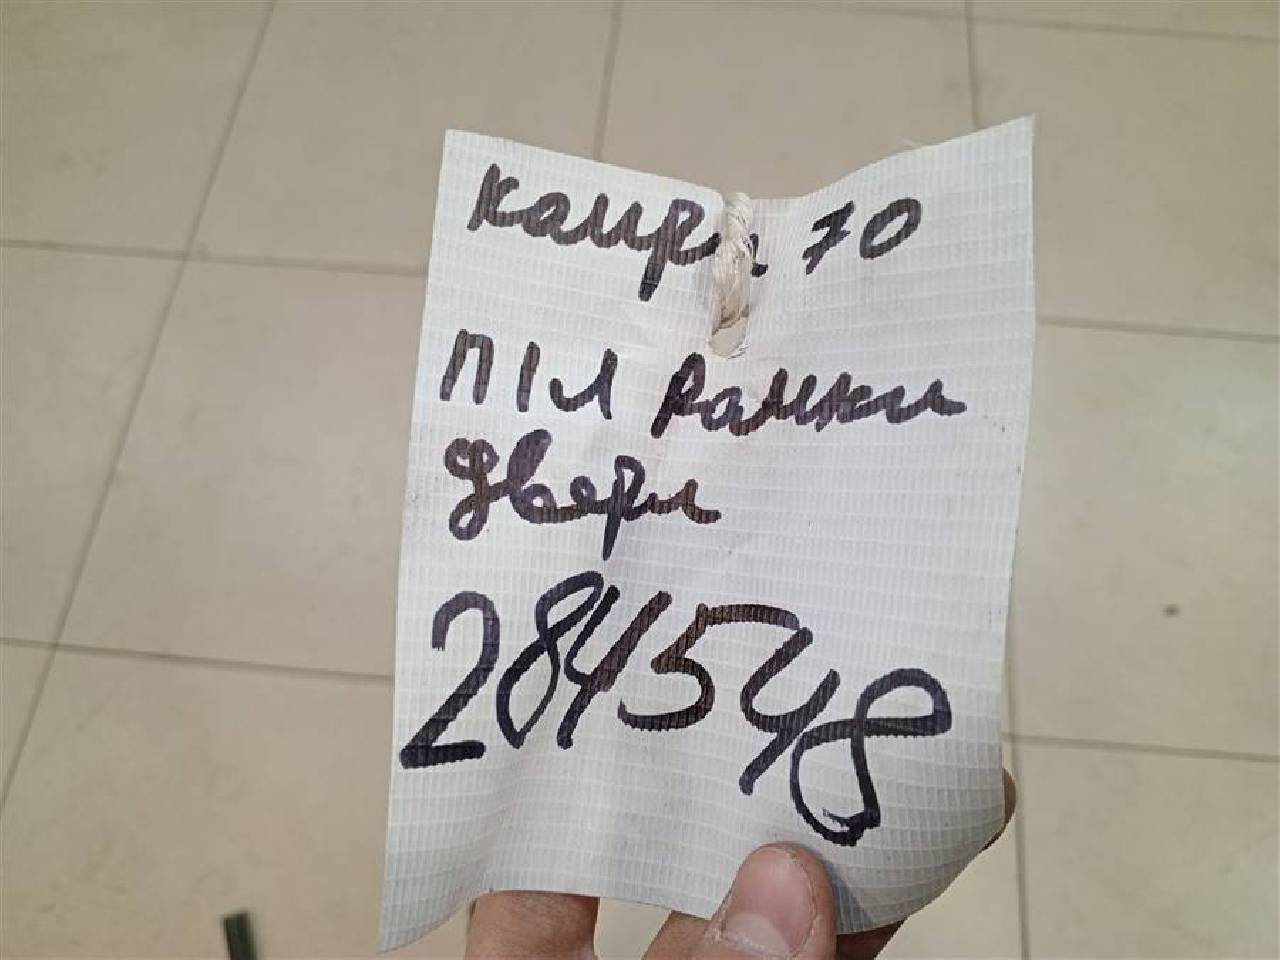 камри 70
П1Л рамки
двери
284548